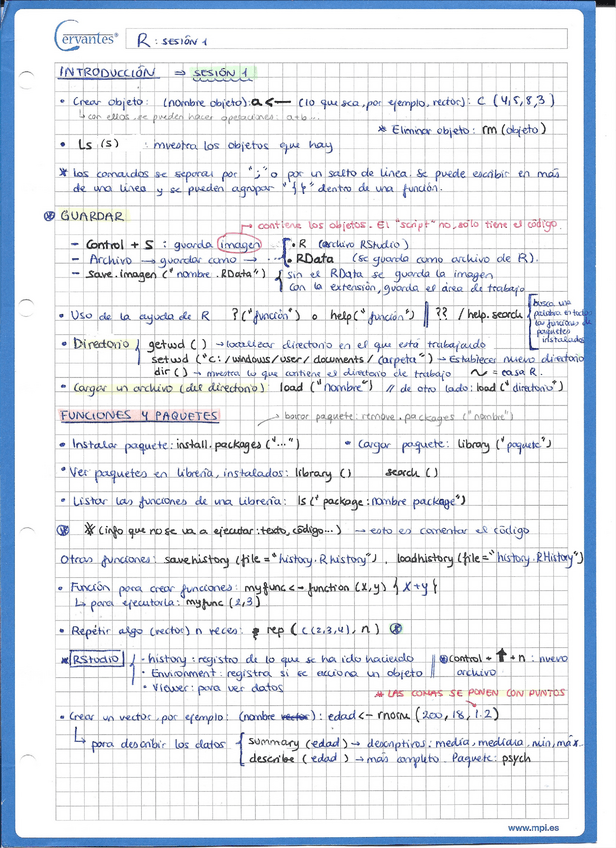 Cervantes® R: SESIÓN 1
INTRODUCCIÓN ⇒ SESIÓN 1
• Crear objeto: (nombre objeto): a <— (lo que sea, por ejemplo, vector): C (4,5,8,3)
↳ con ellos se pueden hacer operaciones: a+b...
* Eliminar objeto: rm (objeto)
• Ls (s) : muestra los objetos que hay
* Los comandos se separan por ";" o por un salto de línea. Se puede escribir en más
de una línea y se pueden agrupar "{ }" dentro de una función.
* GUARDAR
→ contiene los objetos. El "script" no, sólo tiene el código.
- Control + S : guarda imagen { • R (archivo RStudio)
- Archivo → guardar como → ... • RData (se guarda como archivo de R).
- save.image ("nombre.RData") { sin el RData se guarda la imagen
con la extensión, guarda el área de trabajo
• Uso de la ayuda de R ? ("función") o help ("función") || ?? / help.search [ busca una
palabra en todas
las funciones de
paquetes
instalados
• Directorio { getwd () → localizar directorio en el que está trabajando
setwd ("c:/windows/user/documents/(carpeta") → Establecer nuevo directorio
dir () → muestra lo que contiene el directorio de trabajo ~ = casa R.
• Cargar un archivo (del directorio): load ("nombre") // de otro lado: load ("directorio")
FUNCIONES Y PAQUETES → borrar paquete: remove.packages ("nombre")
• Instalar paquete: install.packages ("...") • Cargar paquete: library ("paquete")
• Ver paquetes en librería, instalados: library () search ()
• Listar las funciones de una librería: ls ("package:nombre package")
* * (info que no se va a ejecutar: texto, código...) → esto es comentar el código
Otras funciones: savehistory (file = "history.Rhistory"), loadhistory (file = "history.RHistory")
• Función para crear funciones: myfunc <- function (x,y) { x+y }
↳ para ejecutarla: myfunc (2,3)
• Repetir algo (vector) n veces: rep (c(2,3,4), n)
* RStudio { - history: registro de lo que se ha ido haciendo || control + ↑ + n : nuevo
• Environment: registra si se acciona un objeto archivo
• Viewer: para ver datos
* LAS COMAS SE PONEN CON PUNTOS
• Crear un vector, por ejemplo: (nombre vector): edad <- rnorm (200, 18, 1.2)
↳ para describir los datos { summary (edad) → descriptivos: media, mediana, min, máx
describe (edad) → más completo. Paquete: psych
www.mpi.es